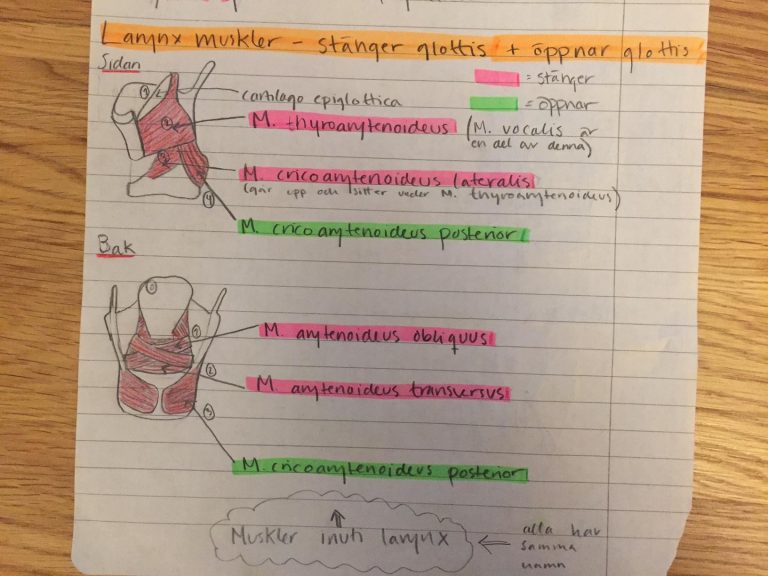 Larynx muskler - stänger glottis + öppnar glottis
Sidan
= stänger
= öppnar
cartilago epiglottica
M. thyroarytenoideus (M. vocalis är
en del av denna)
M. cricoarytenoideus lateralis
(går upp och sitter under M. thyroarytenoideus)
M. cricoarytenoideus posterior
1
2
3
4
Bak
0
1
M. arytenoideus obliquus
2
M. arytenoideus transversus
3
M. cricoarytenoideus posterior
Muskler inuti larynx
alla har
samma
namn